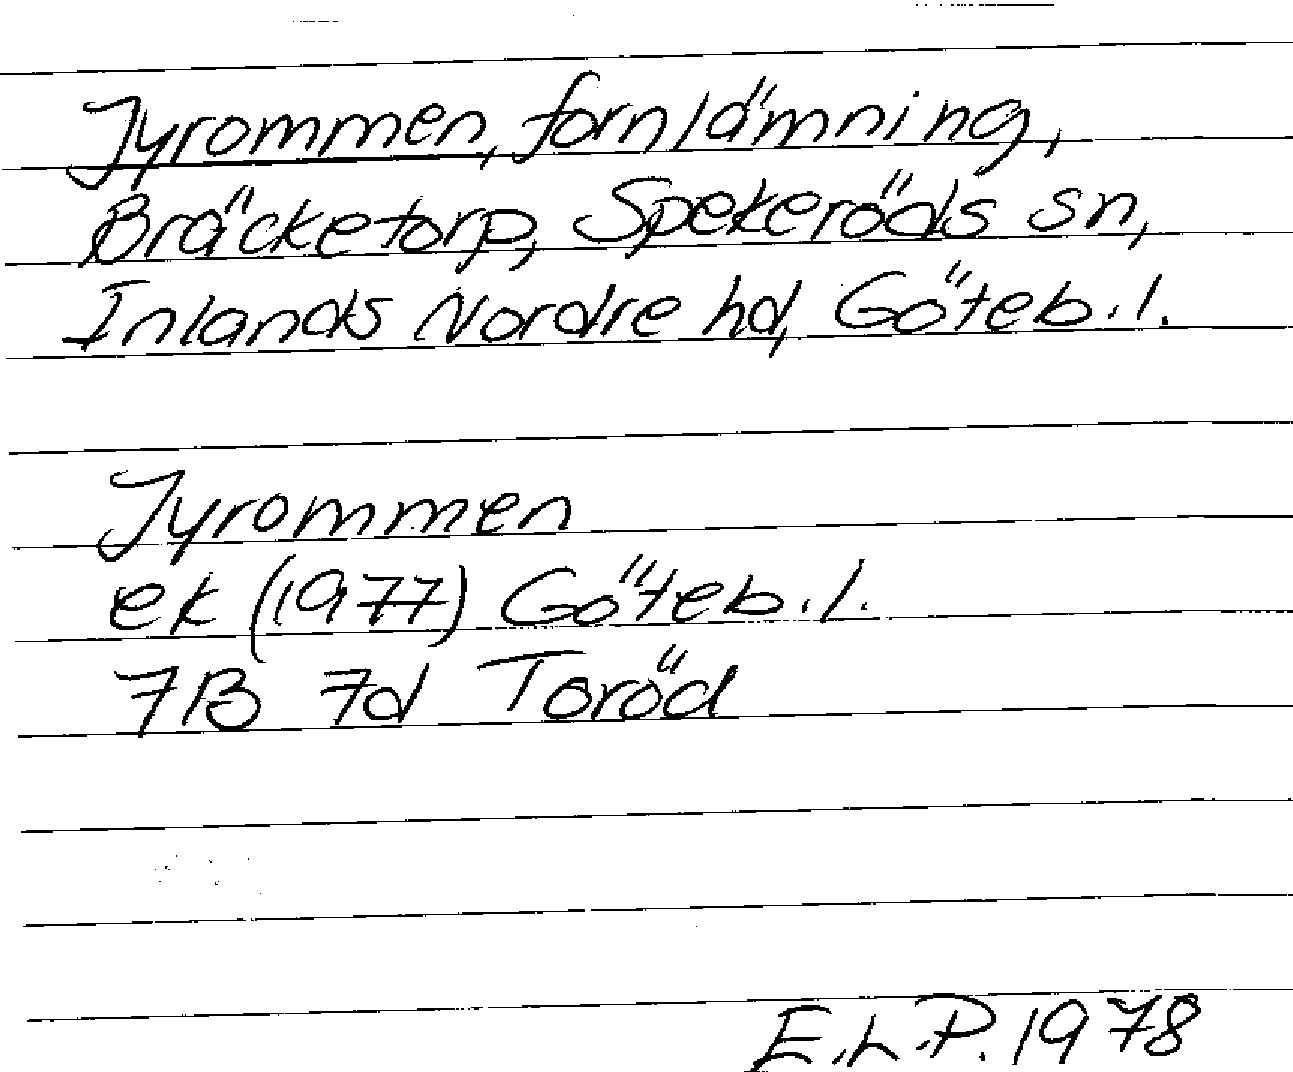 Jyrommen, fornlämning,
Bräcketorp, Spekeröds sn,
Inlands Nordre hd, Göteb.l.
Jyrommen
ek (1977) Göteb.l.
7B 7d Toröd
E.L.P. 1978